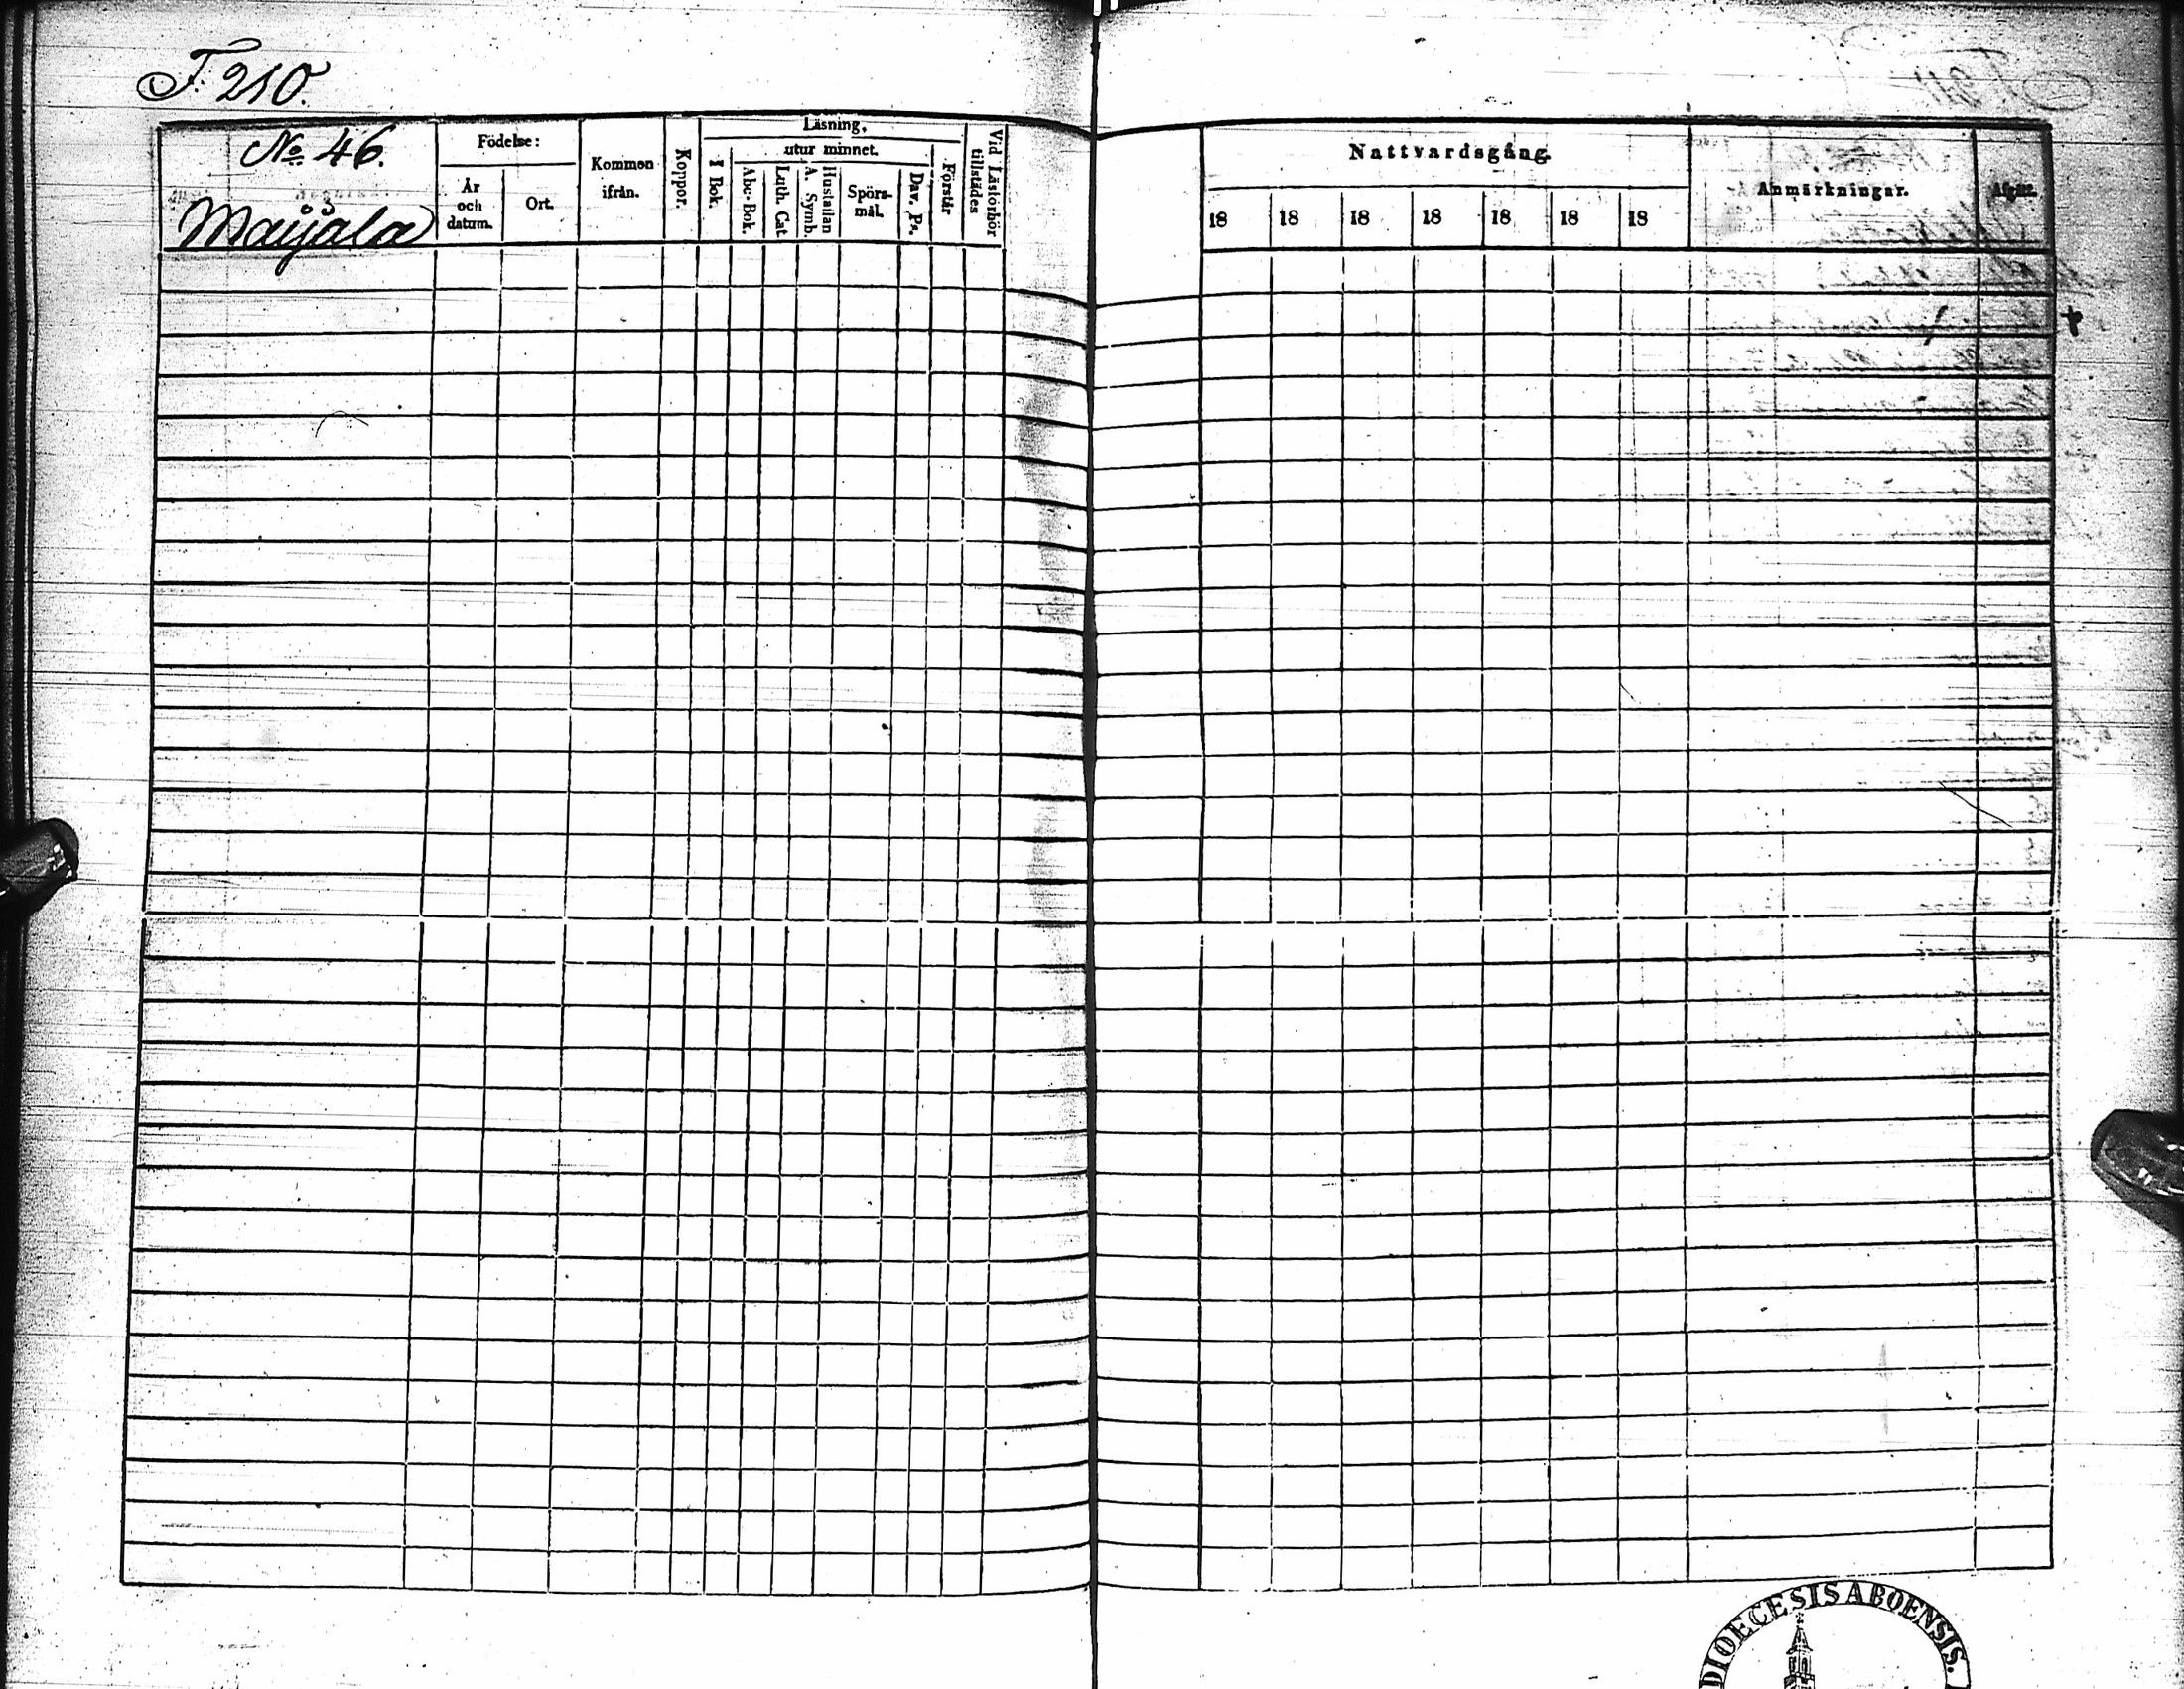 F. 210.
No 46.
Maijala
Födelse:
År och datum.
Ort.
Kommen ifrån.
Koppor.
Läsning,
I Bok.
utur minnet.
Abc-Bok.
Luth. Cat.
Hustaflan A. Symb.
Spörs-mål.
Dav. Ps.
Förstår
Vid Läsförhör tillstädes
Nattvardsgång.
18 18 18 18 18 18 18
Anmärkningar.
Afgått.
DIOECESIS ABOENSIS.